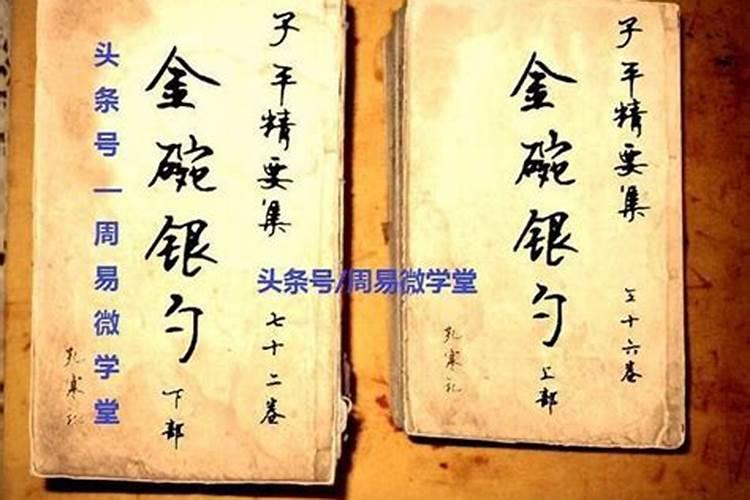 子平精要集
金碗银勺
下部
七十二卷
头条号一周易微学堂
头条号/周易微学堂
子平精要集
金碗银勺
上部
五十六卷